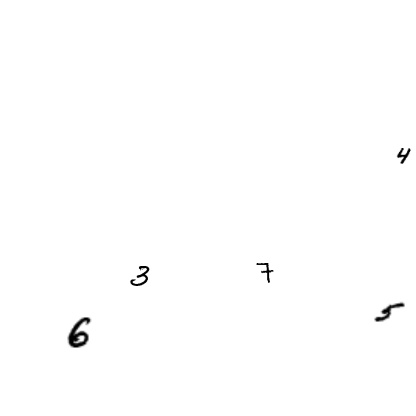 4
3 7
5
6